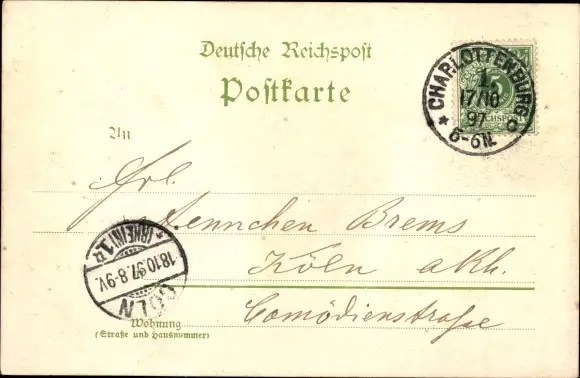 Deutsche Reichspost
Postkarte
CHARLOTTENBURG
1
17/10
97
5-6N.
* C
5
REICHSPOST
An
Frl.
Aennchen Brems
Köln a Rh.
Comödienstraße
CÖLN
18.10.97.8-9V.
* (RHEIN) 1
Wohnung
(Straße und Hausnummer)